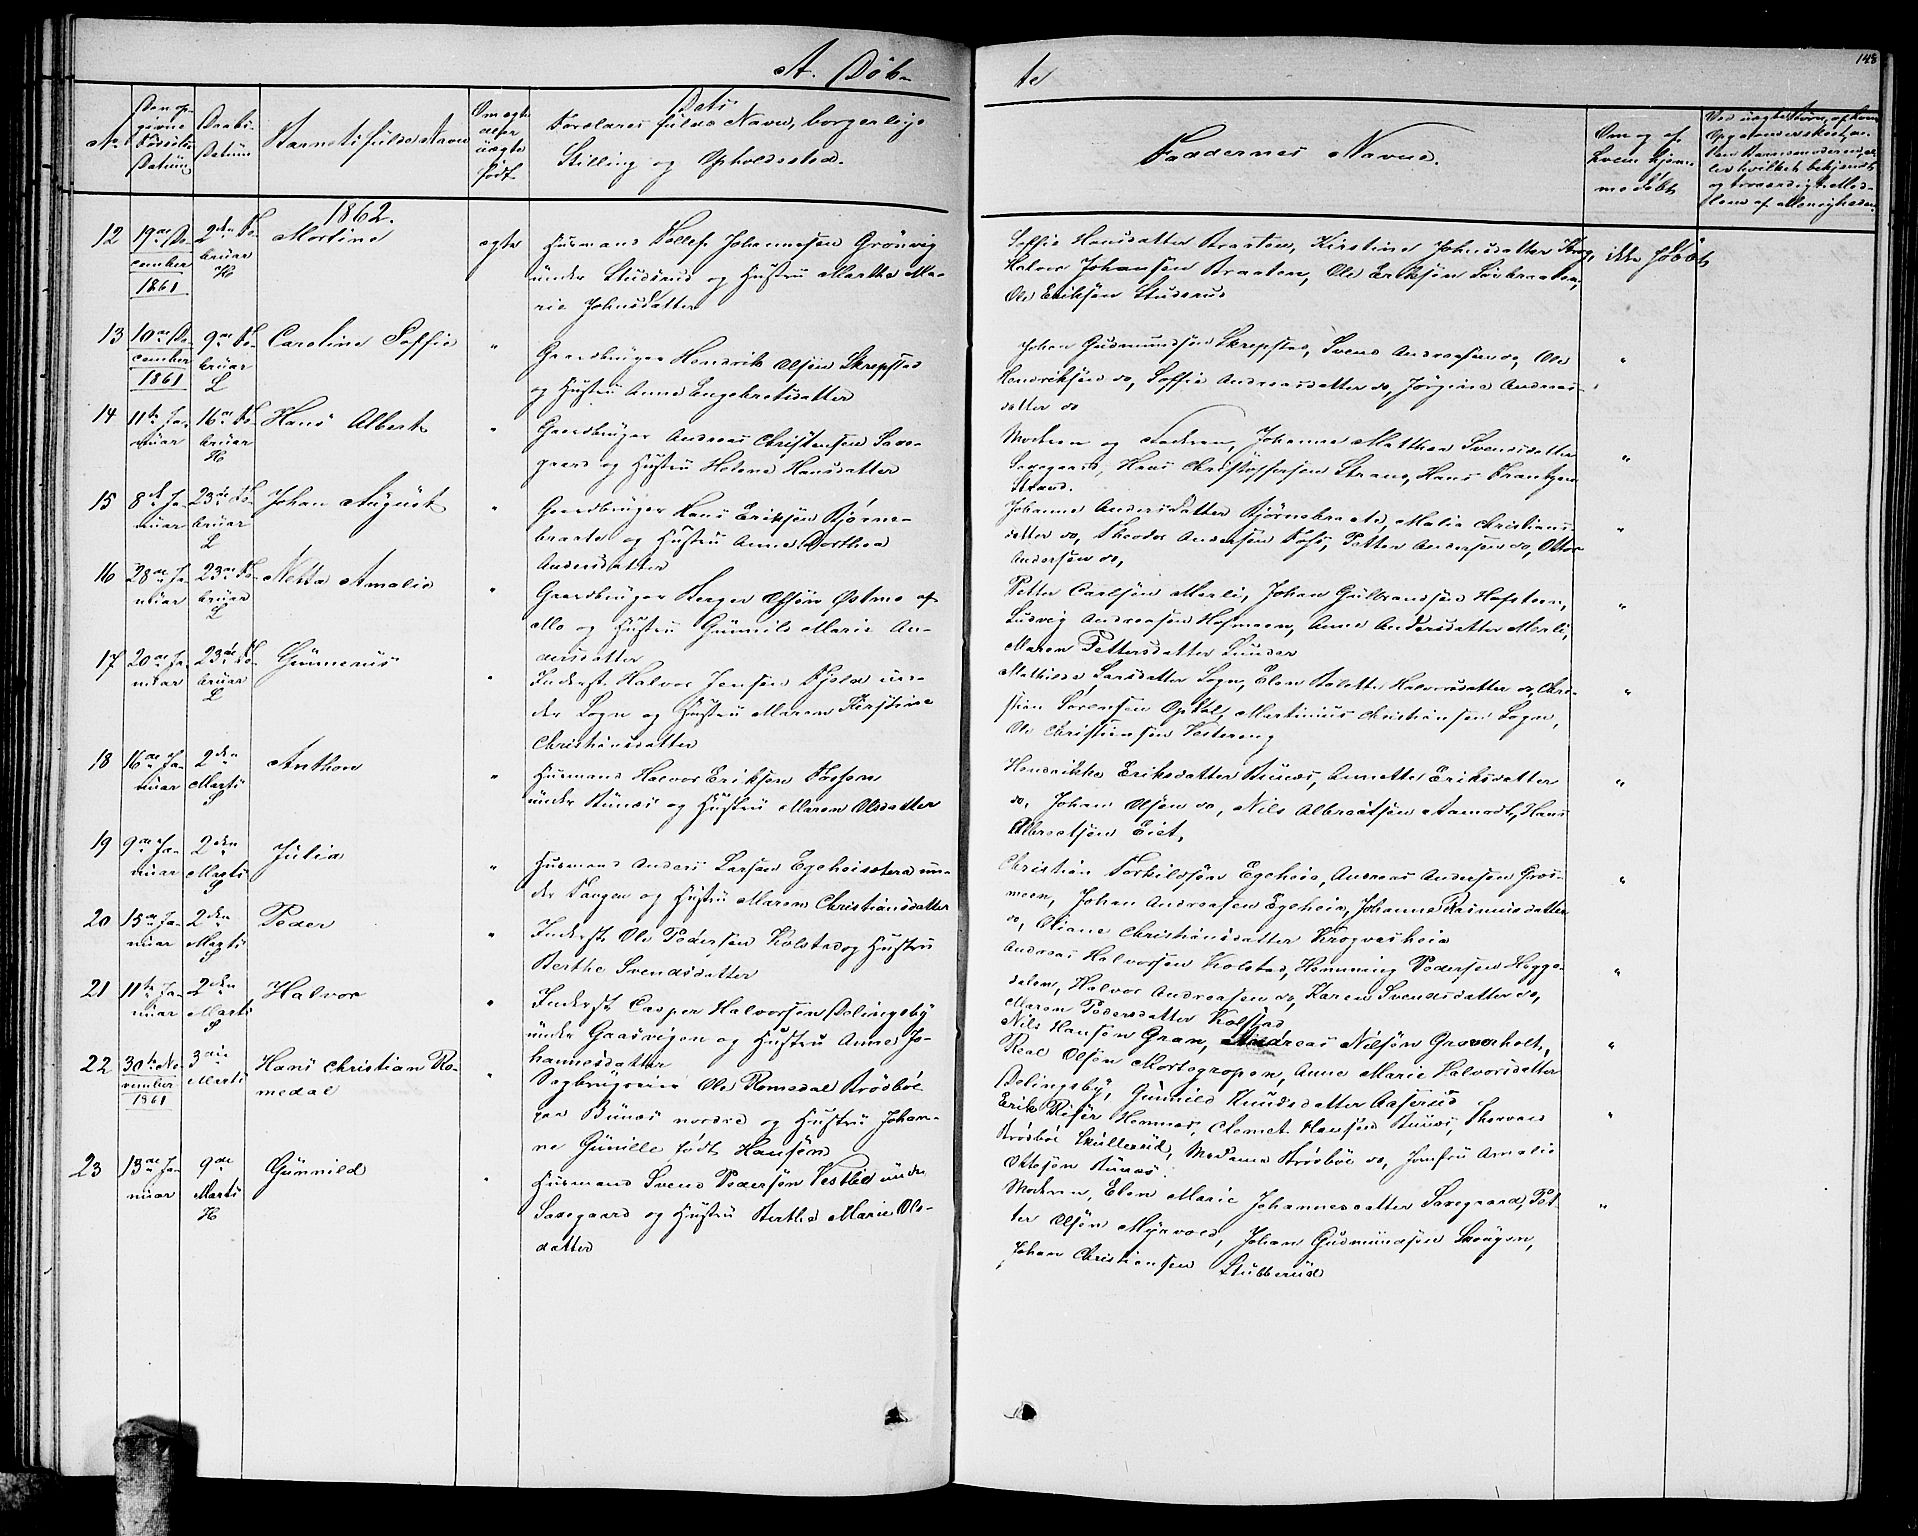 148
A. Døb-
te
No
Den op-
givne
Fødsels
Datum
Daabs-
Datum
Barnets fulde Navn
Om ægte
eller
uægte
født
Dets
Forældres fulde Navn, borgerlige
Stilling og Opholdssted.
Faddernes Navne.
Om og af
hvem hjem-
medøbt
1862.
12
19de De-
cember
1861
2den Fe-
bruar
H
Martine
ægte
Husmand Tollef Johannesen Grönvig
under Studsrud og Hustru Marthe Ma-
rie Johnsdatter
Soffie Hansdatter Braaten, Kirstine Johnsdatter
Halvor Johansen Braaten, Ole Eriksøn Lierbraaten,
Ole Eriksøn Studsrud
ikke døbt
13
10de De-
cember
1861
9de Fe-
bruar
L
Caroline Soffie
"
Gaardbruger Hendrik Olsøn Skrepstad
og Hustru Anne Engebretsdatter
Johan Gudmundsøn Skrepstad, Svend Andreasen do, Ole
Hendriksøn do, Soffie Andreasdatter do, Jørgine Andreas-
datter do
"
14
11te Ja-
nuar
16de Fe-
bruar
H
Hans Albert
"
Gaardbruger Andreas Christensen Save-
gaard og Hustru Helene Hansdatter
Moderen og Faderen, Johanne Mathea Svendsdatter
Savegaard, Hans Christoffersen Strand, Hans Frantzen
Strand.
"
15
8de Ja-
nuar
23de Fe-
bruar
L
Johan August
"
Gaardbruger Hans Eriksøn Bjørne-
braate og Hustru Anne Dorthea
Andersdatter
Johanne Andersdatter Bjørnebraate, Malie Christians-
datter do, Theodor Andersen Foss, Petter Andersen do, Otter
Andersøn do,
"
16
28de Ja-
nuar
23de Fe-
bruar
L
Netta Amalie
"
Gaardbruger Berger Olsøn Østmo af
Mo og Hustru Gunnild Marie An-
dersdatter
Petter Carlsøn Merli, Johan Gulbrandsen Hafsteen,
Ludvig Andreasen Hofmoen, Anne Andersdatter Merli,
Maren Pettersdatter Lunder
"
17
20de Ja-
nuar
23de Fe-
bruar
L
Gunnerus
"
Inderst Halvor Jensen Kjeld un-
der Sogn og Hustru Maren Kirstine
Christiansdatter
Mathilde Larsdatter Sogn, Elen Bolette Halvorsdatter do, Chri-
stian Sørensen Opdal, Martinius Christiansen Sogn,
Ole Christiansen Vestereng
"
18
16de Ja-
nuar
2den
Marts
S
Anthon
"
Husmand Halvor Eriksøn Fossen
under Bunæs og Hustru Maren Olsdatter
Hendrikke Eriksdatter Bunæs, Annette Eriksdatter
do, Johan Olsøn do, Nils Albretsøn Aamodt, Hans
Albretsøn Eiet,
"
19
9de Ja-
nuar
2den
Marts
S
Julia
"
Husmand Anders Larsen Egeheisetera un-
der Tangen og Hustru Maren Christiansdatter
Christian Torkildsøn Egeheia, Andreas Andersen Gros-
moen, Johan Andreasen Egeheia, Johanne Rasmusdatter
do, Oliane Christiansdatter Krogvasheia
"
20
15de Ja-
nuar
2den
Marts
S
Peder
"
Inderst Ole Pedersen Kolstad og Hustru
Berthe Svendsdatter
Andreas Halvorsen Kolstad, Hemming Pedersen Hegge-
dalen, Halvor Andreasen do, Karen Svendsdatter do,
Maren Pedersdatter Kolstad
"
21
11te Ja-
nuar
2den
Marts
S
Halvor
"
Inderst Casper Halvorsen Dalingsby
under Gaasvigen og Hustru Anne Jo-
hannesdatter
Nils Hansøn Gran, Andreas Nilsøn Graverholt,
Real Olsøn Mortegropen, Anne Marie Halvorsdatter
Dalingsby, Gunnild Knudsdatter Aaserud
"
22
30te No-
vember
1861
3die
Marts
Hans Christian Ro-
medal
"
Sagbrugseier Ole Romedal Brösböe
paa Bunæs nordre og Hustru Johan-
ne Gunille født Hansøn
Erik Riser Hemnes, Clemet Hansøn Bunæs, Thorvald
Brösböe Skullerud, Madame Brösböe do, Jomfru Amalie
Ottesøn Bunæs.
"
23
13de Ja-
nuar
9de
Marts
H
Gunnild
"
Husmand Svend Pedersøn Vestlie under
Savegaard og Hustru Berthe Marie Ols-
datter
Moderen, Elen Marie Johannesdatter Savegaard, Pet-
ter Olsøn Myrvold, Johan Gudmundsøn Skougen,
Johan Christiansen Stubberud
"